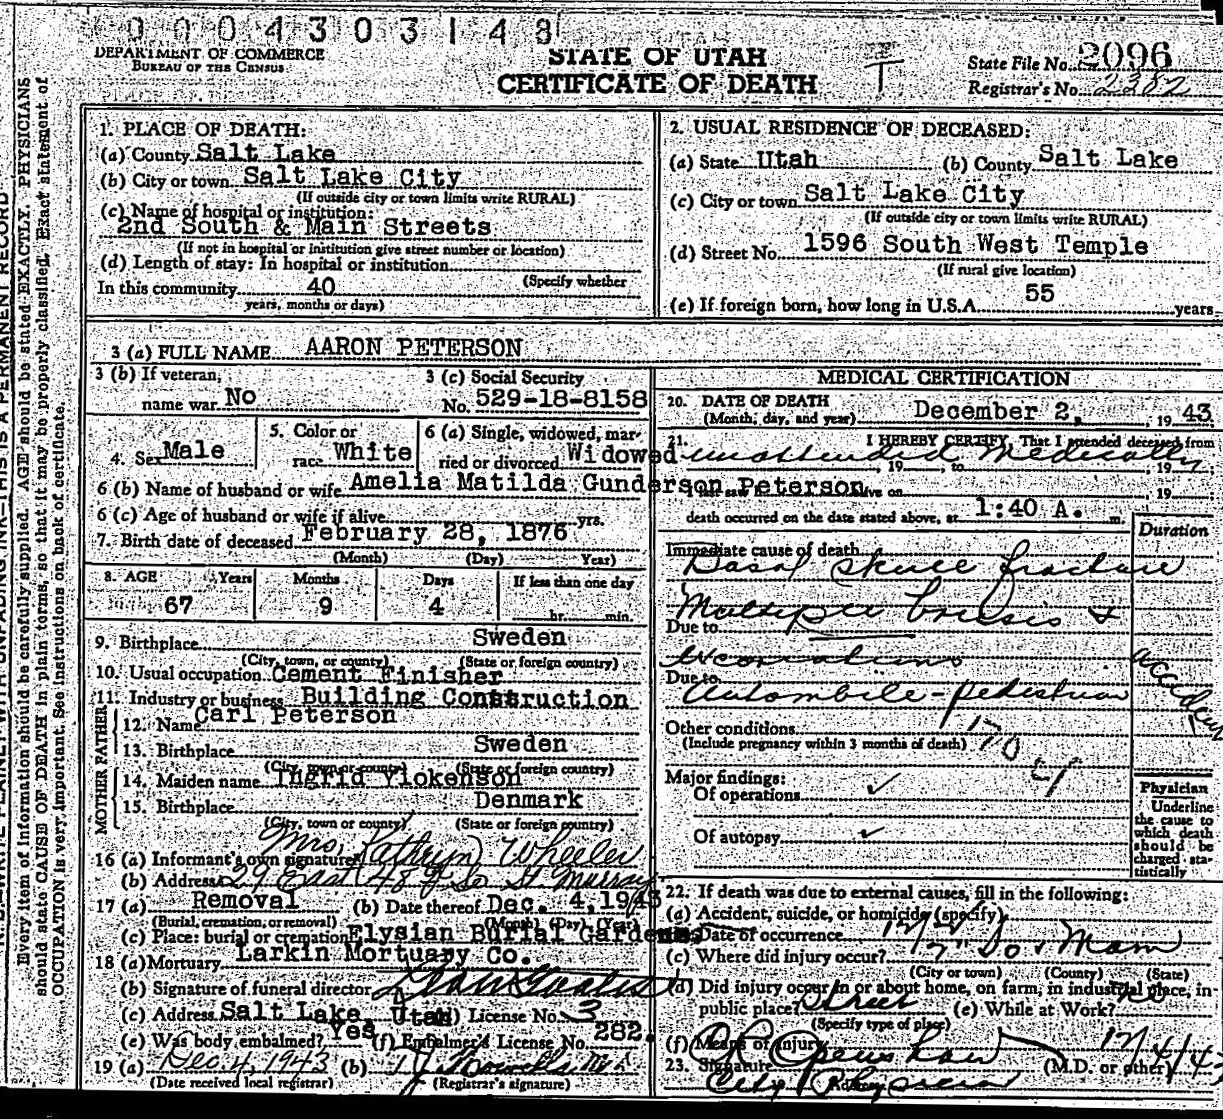 0004303148
DEPARTMENT OF COMMERCE
BUREAU OF THE CENSUS
STATE OF UTAH
CERTIFICATE OF DEATH
T
State File No. 2096
Registrar's No. 2382
N. B.—WRITE PLAINLY WITH UNFADING INK—THIS IS A PERMANENT RECORD
Every item of information should be carefully supplied. AGE should be stated EXACTLY. PHYSICIANS
should state CAUSE OF DEATH in plain terms, so that it may be properly classified. Exact statement of
OCCUPATION is very important. See instructions on back of certificate.
1. PLACE OF DEATH:
(a) County Salt Lake
(b) City or town Salt Lake City
(If outside city or town limits write RURAL)
(c) Name of hospital or institution:
2nd South & Main Streets
(If not in hospital or institution give street number or location)
(d) Length of stay: In hospital or institution
(Specify whether
In this community 40
years, months or days)
2. USUAL RESIDENCE OF DECEASED:
(a) State Utah (b) County Salt Lake
(c) City or town Salt Lake City
(If outside city or town limits write RURAL)
(d) Street No. 1596 South West Temple
(If rural give location)
(e) If foreign born, how long in U.S.A. 55 years.
3 (a) FULL NAME AARON PETERSON
3 (b) If veteran, name war No
3 (c) Social Security No. 529-18-8158
4. Sex Male
5. Color or race White
6 (a) Single, widowed, married or divorced Widowed
6 (b) Name of husband or wife Amelia Matilda Gunderson Peterson
6 (c) Age of husband or wife if alive yrs.
7. Birth date of deceased February 28, 1876
(Month) (Day) (Year)
8. AGE Years Months Days If less than one day
67 9 4 hr. min.
9. Birthplace Sweden
(City, town, or county) (State or foreign country)
10. Usual occupation Cement Finisher
11. Industry or business Building Construction
FATHER
12. Name Carl Peterson
13. Birthplace Sweden
(City, town or county) (State or foreign country)
MOTHER
14. Maiden name Ingrid Vickenson
15. Birthplace Denmark
(City, town or county) (State or foreign country)
16 (a) Informant's own signature Mrs. Kathryn Wheeler
(b) Address 29 East 48 So St. Murray
17 (a) Removal (b) Date thereof Dec. 4, 1943
(Burial, cremation, or removal) (Month) (Day) (Year)
(c) Place: burial or cremation Elysian Burial Gardens
18 (a) Mortuary Larkin Mortuary Co.
(b) Signature of funeral director
(c) Address Salt Lake, Utah (d) License No. 3
(e) Was body embalmed? Yes (f) Embalmer's License No. 282.
19 (a) Dec. 4, 1943 (b)
(Date received local registrar) (Registrar's signature)
MEDICAL CERTIFICATION
20. DATE OF DEATH
(Month, day, and year) December 2, 1943
21. I HEREBY CERTIFY, That I attended deceased from
unattended Medically , 19 , to , 19
alive on , 19
death occurred on the date stated above, at 1:40 A. m.
Duration
Immediate cause of death
Basal skull fracture
Multiple bruises &
Due to
excoriations
Due to
Automobile-pedestrian
accident
Other conditions
(Include pregnancy within 3 months of death) 170
Major findings:
Of operations ✓
Of autopsy ✓
Physician
Underline
the cause to
which death
should be
charged statistically
22. If death was due to external causes, fill in the following:
(a) Accident, suicide, or homicide (specify)
(b) Date of occurrence 12/2
(c) Where did injury occur? 2" So & Main
(City or town) (County) (State)
(d) Did injury occur in or about home, on farm, in industrial place, in public place? Street (e) While at Work? no
(Specify type of place)
(f) Means of injury
23. Signature (M.D. or other) 12/4/43
City Physician